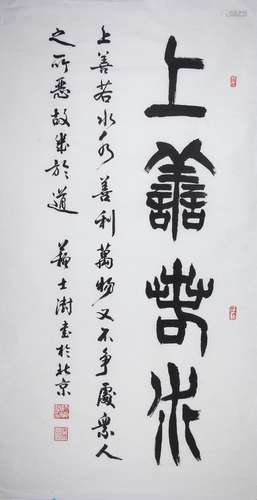 上善若水
上善若水水善利萬物又不爭處衆人
之所惡故幾於道
蘇士澍書於北京